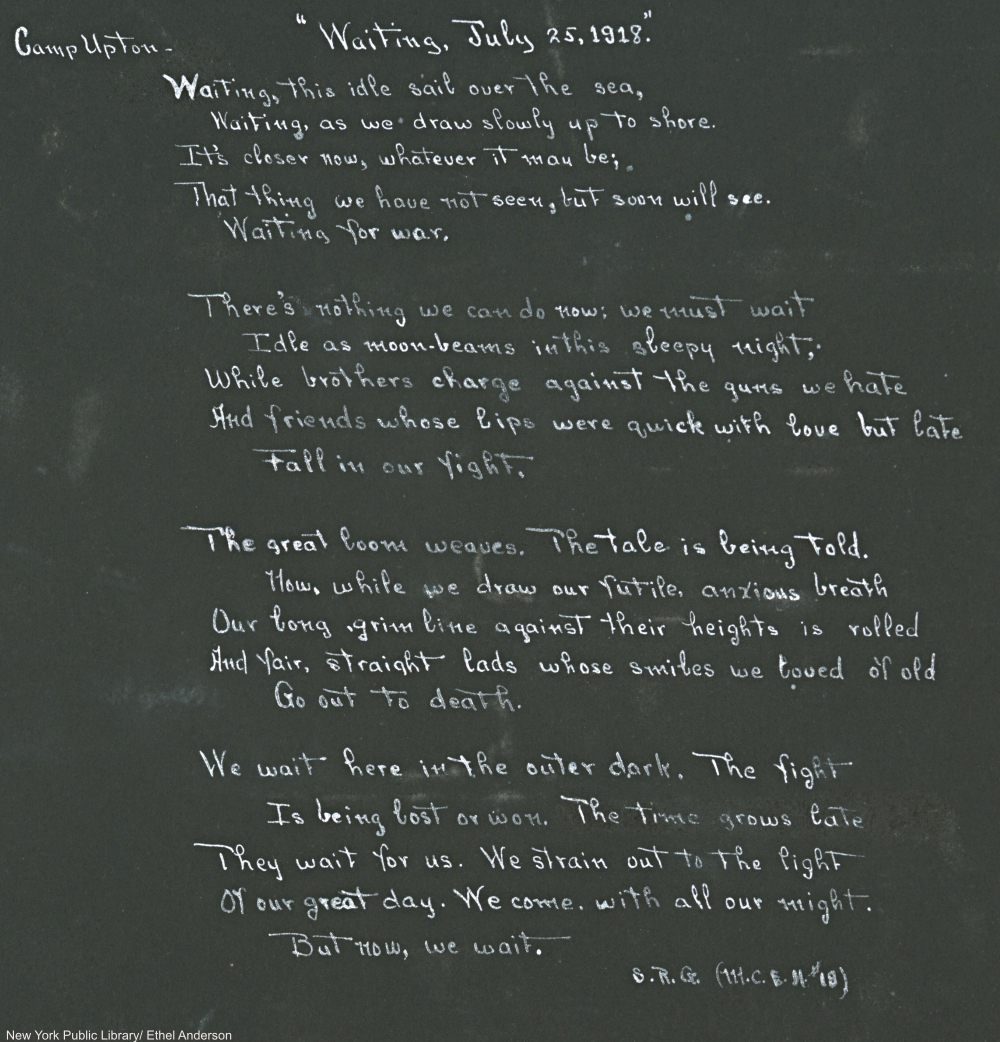 "Waiting, July 25, 1918."
Camp Upton -
Waiting, this idle sail over the sea,
Waiting, as we draw slowly up to shore.
It's closer now, whatever it may be;
That thing we have not seen, but soon will see.
Waiting for war.
There's nothing we can do now; we must wait
Idle as moon-beams in this sleepy night;
While brothers charge against the guns we hate
And friends whose lips were quick with love but late
Fall in our fight.
The great loom weaves. The tale is being told.
Now, while we draw our futile, anxious breath
Our long grim line against their heights is rolled
And fair, straight lads whose smiles we loved of old
Go out to death.
We wait here in the outer dark. The fight
Is being lost or won. The time grows late
They wait for us. We strain out to the light
Of our great day. We come, with all our might.
But now, we wait.
S.R.G. (M.C.S.N.'18)
New York Public Library/ Ethel Anderson